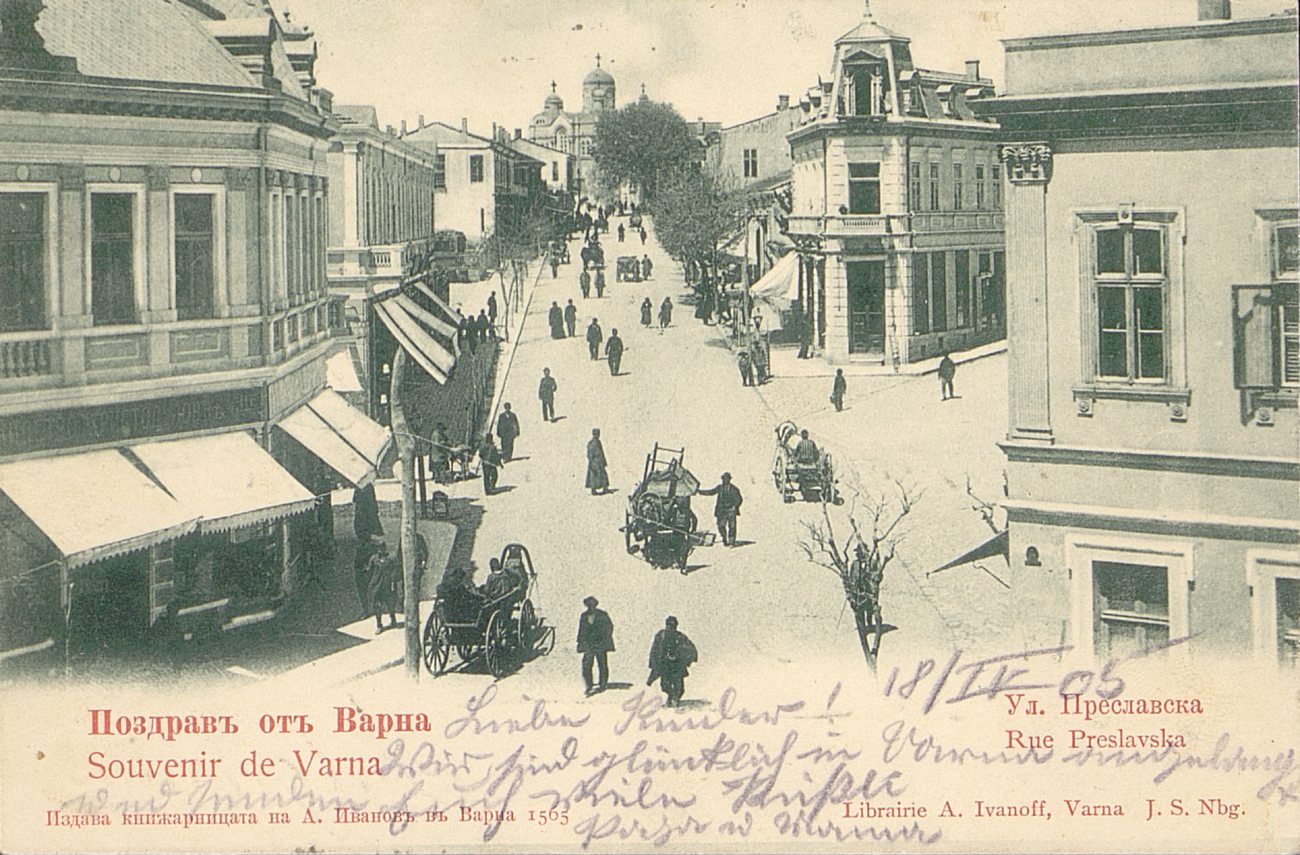 Поздравъ отъ Варна
Souvenir de Varna
Издава книжарницата на А. Ивановъ въ Варна 1565
Ул. Преславска
Rue Preslavska
Librairie A. Ivanoff, Varna J. S. Nbg.
18/IV 05
Liebe Kinder!
Wir sind glücklich in Varna
und senden Euch viele Küße
Papa u Mama